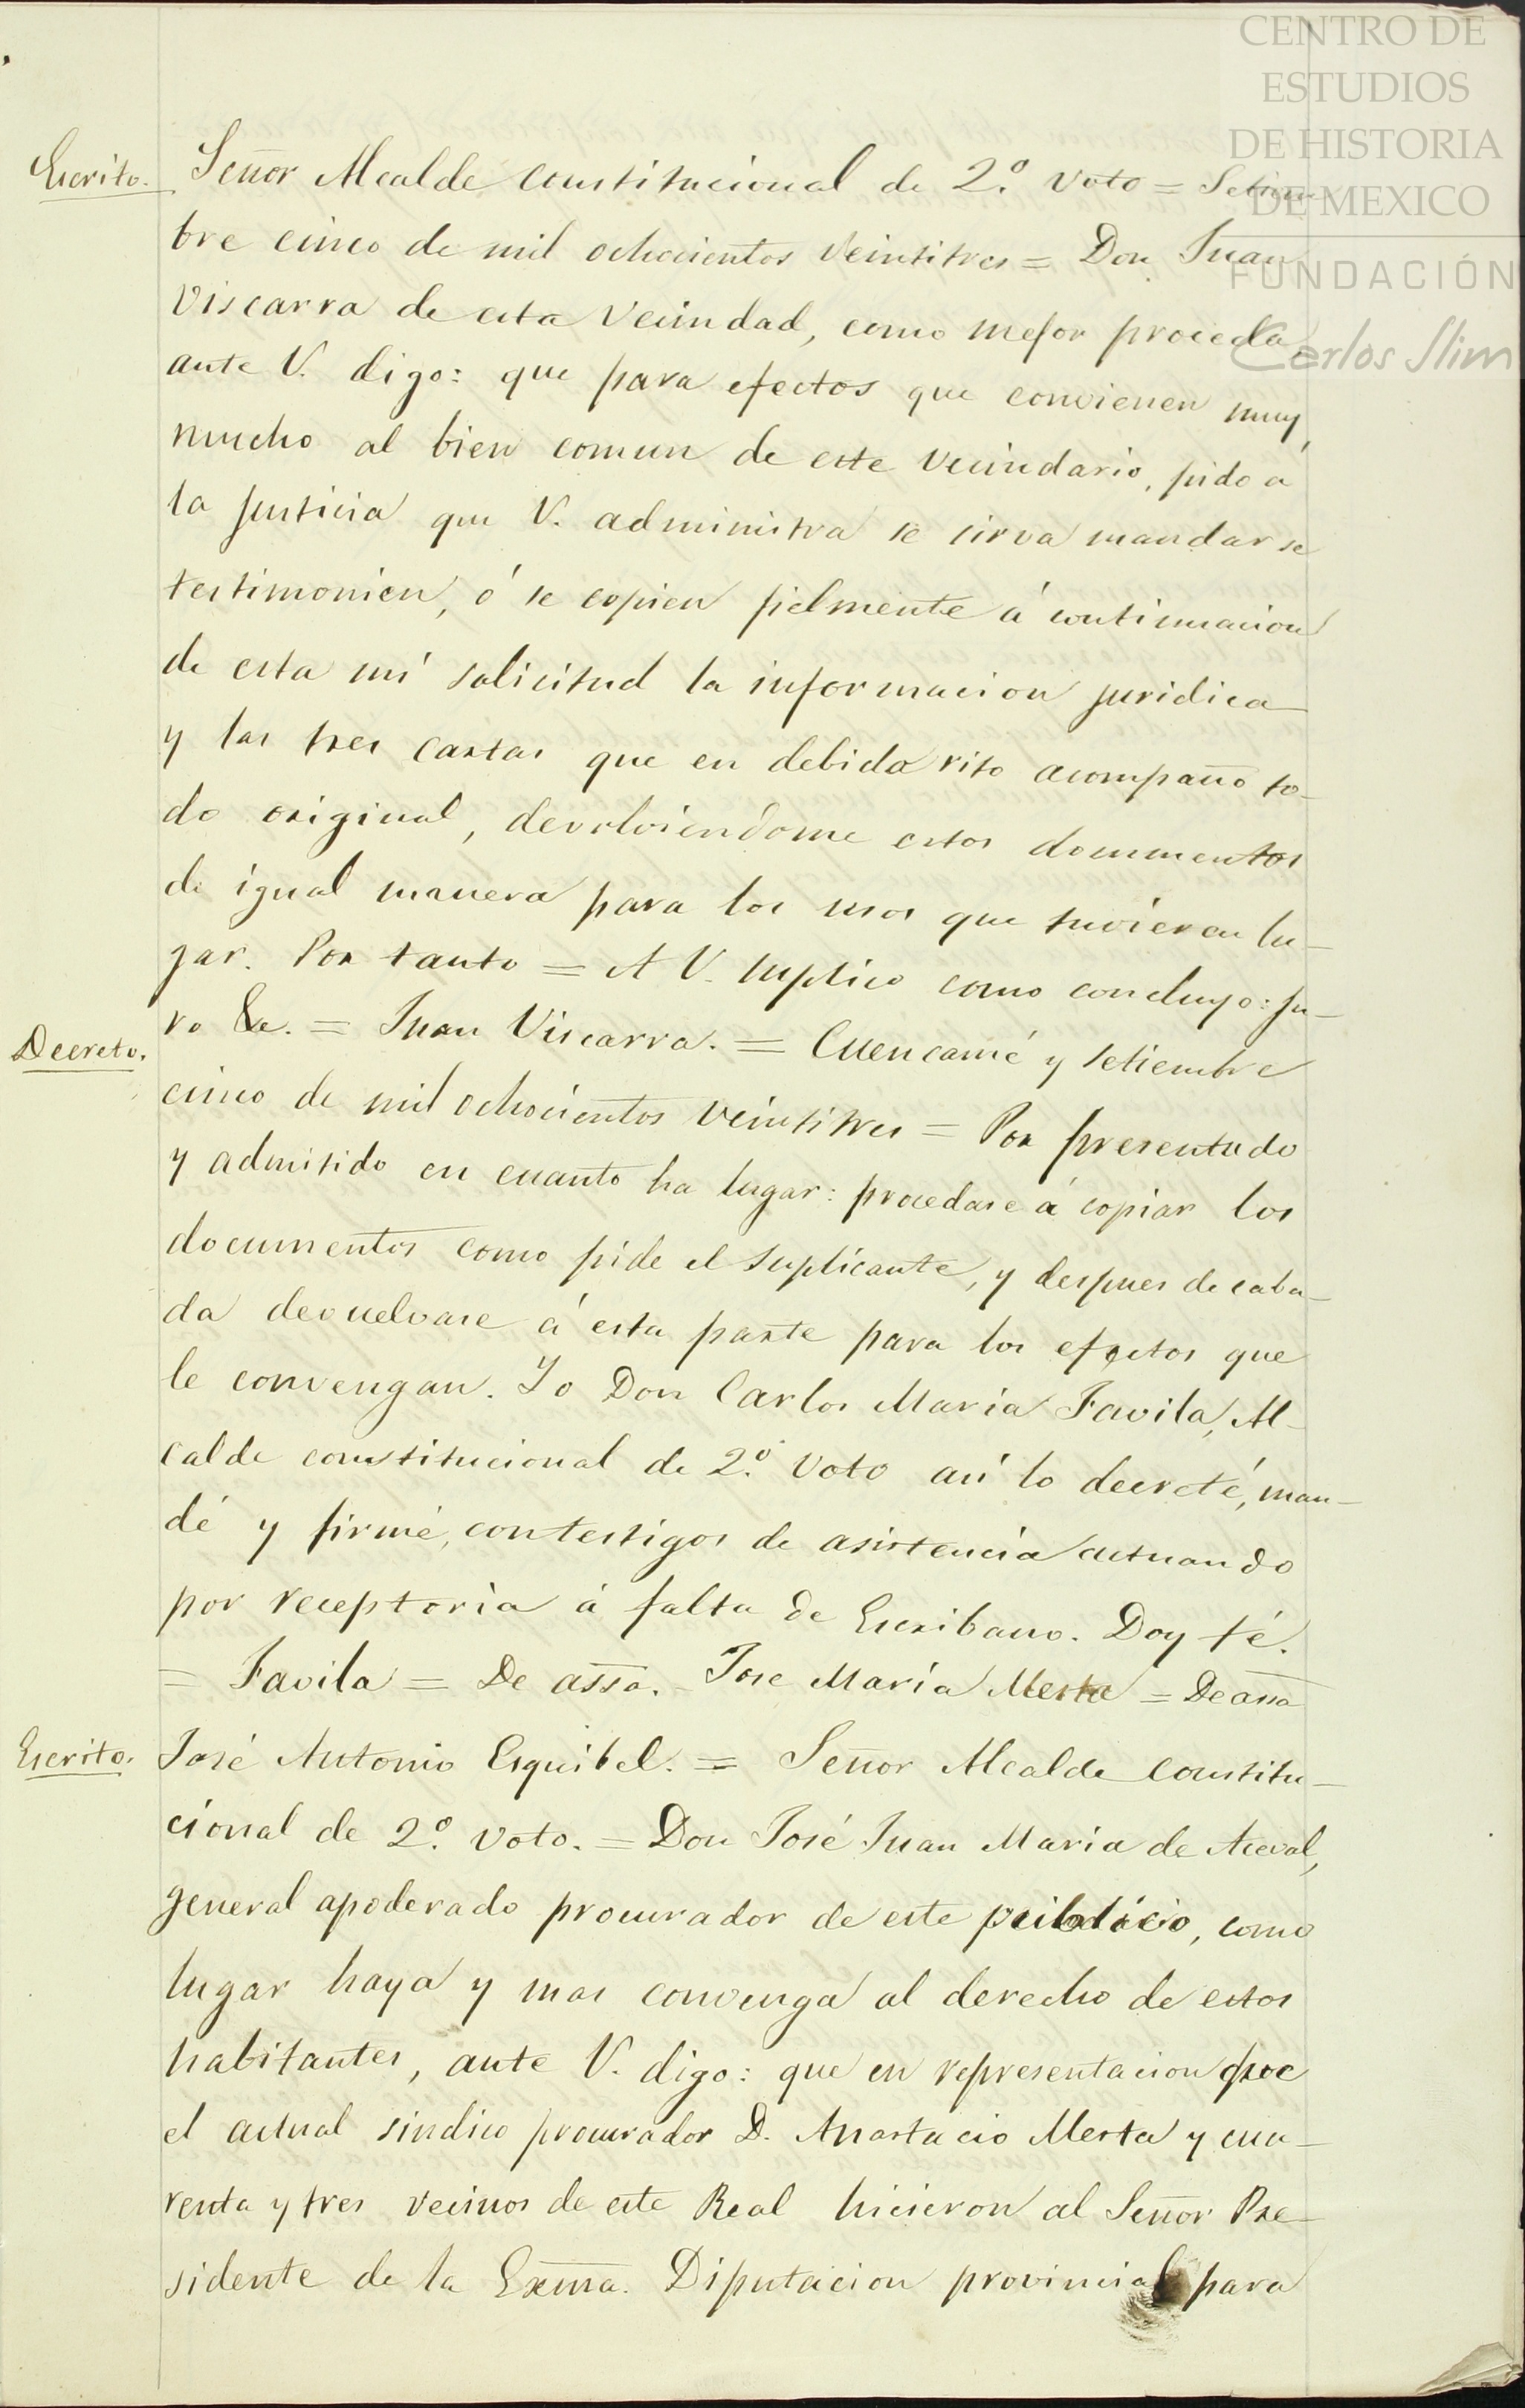 CENTRO DE
ESTUDIOS
DE HISTORIA
DE MEXICO
FUNDACIÓN
Carlos Slim
Escrito. Señor Alcalde constitucional de 2.º voto = Setiem-
bre cinco de mil ochocientos veintitres = Don Juan
Viscarra de esta vecindad, como mejor proceda
ante V. digo: que para efectos que convienen muy
mucho al bien comun de este vecindario, pido á
la justicia que V. administra se sirva mandar se
testimonien, ó se copien fielmente á continuacion
de esta mi solicitud la informacion juridica
y las tres cartas que en debido rito acompaño to-
do original, devolviendome estos documentos
de igual manera para los usos que tuvieren lu-
gar. Por tanto = A V. suplico como concluyo: ju-
ro &c. = Juan Viscarra. = Cuencamé y Setiembre
Decreto. cinco de mil ochocientos veintitres = Por presentado
y admitido en cuanto ha lugar: procedase á copiar los
documentos como pide el suplicante, y despues de caba-
da devuelvase á esta parte para los efectos que
le convengan. Yo Don Carlos Maria Favila, Al-
calde constitucional de 2.º voto así lo decreté, man-
dé y firmé, con testigos de asistencia actuando
por receptoria á falta de Escribano. Doy fé.
= Favila = De assa. = Jose María Mesta = De assa
Escrito. José Antonio Esquibel. = Señor Alcalde constitu-
cional de 2.º voto. = Don José Juan Maria de Aceval,
general apoderado procurador de este, como
lugar haya y mas convenga al derecho de estos
habitantes, ante V. digo: que en representacion que
el actual sindico procurador D. Anastacio Mesta y cua-
renta y tres vecinos de este Real hicieron al Señor Pre-
sidente de la Exma. Diputacion provincial para